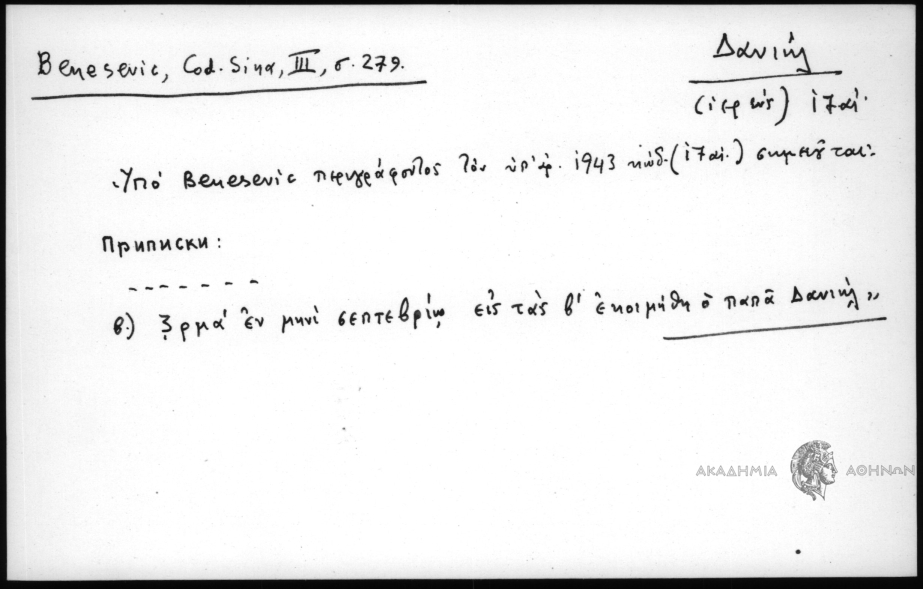 Benesevic, Cod. Sina, III, σ. 279.
Δανιήλ
(ἱερεύς) ι7αι.
Ὑπό Benesevic περιγράφοντος τόν ὑπ' ἀρ. 1943 κώδ. (ι7αι.) σημειοῦται:
Приписки:
-------
в.) ζρμά ἐν μηνὶ σεπτεβρίῳ εἰς τὰς β' ἐκοιμήθη ὁ παπᾶ Δανιήλ"
ΑΚΑΔΗΜΙΑ ΑΘΗΝΩΝ